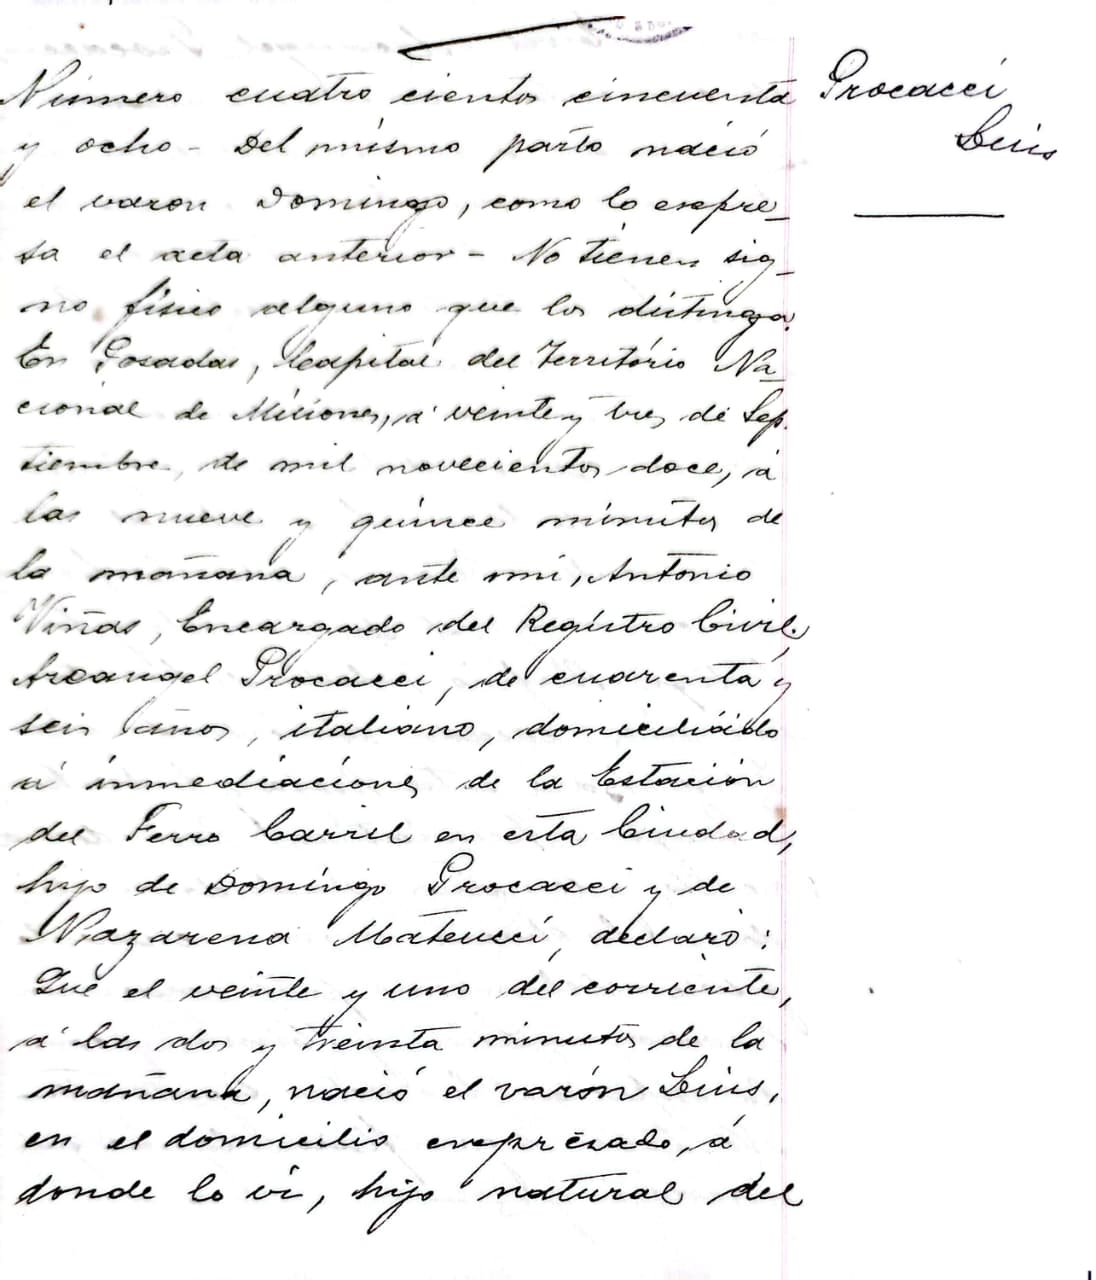 Número cuatro cientos cincuenta
y ocho - Del mismo parto nació
el varon Domingo, como lo expre_
sa el acta anterior - No tienen sig_
no físico alguno que los distinga.
En Posadas, Capital del Territorio Na_
cional de Misiones, á veinte y tres de Sep.
tiembre de mil novecientos doce, á
las nueve y quince minutos de
la mañana, ante mi, Antonio
Viñas, Encargado del Registro Civil.
Arcangel Procacci, de cuarenta y
seis años, italiano, domiciliado
á inmediaciones de la Estación
del Ferro Carril en esta Ciudad,
hijo de Domingo Procacci y de
Nazarena Mateucci, declaró:
Que el veinte y uno del corriente,
á las dos y treinta minutos de la
mañana, nació el varón Luis,
en el domicilio expresado, á
donde lo vi, hijo natural del
Procacci
Luis